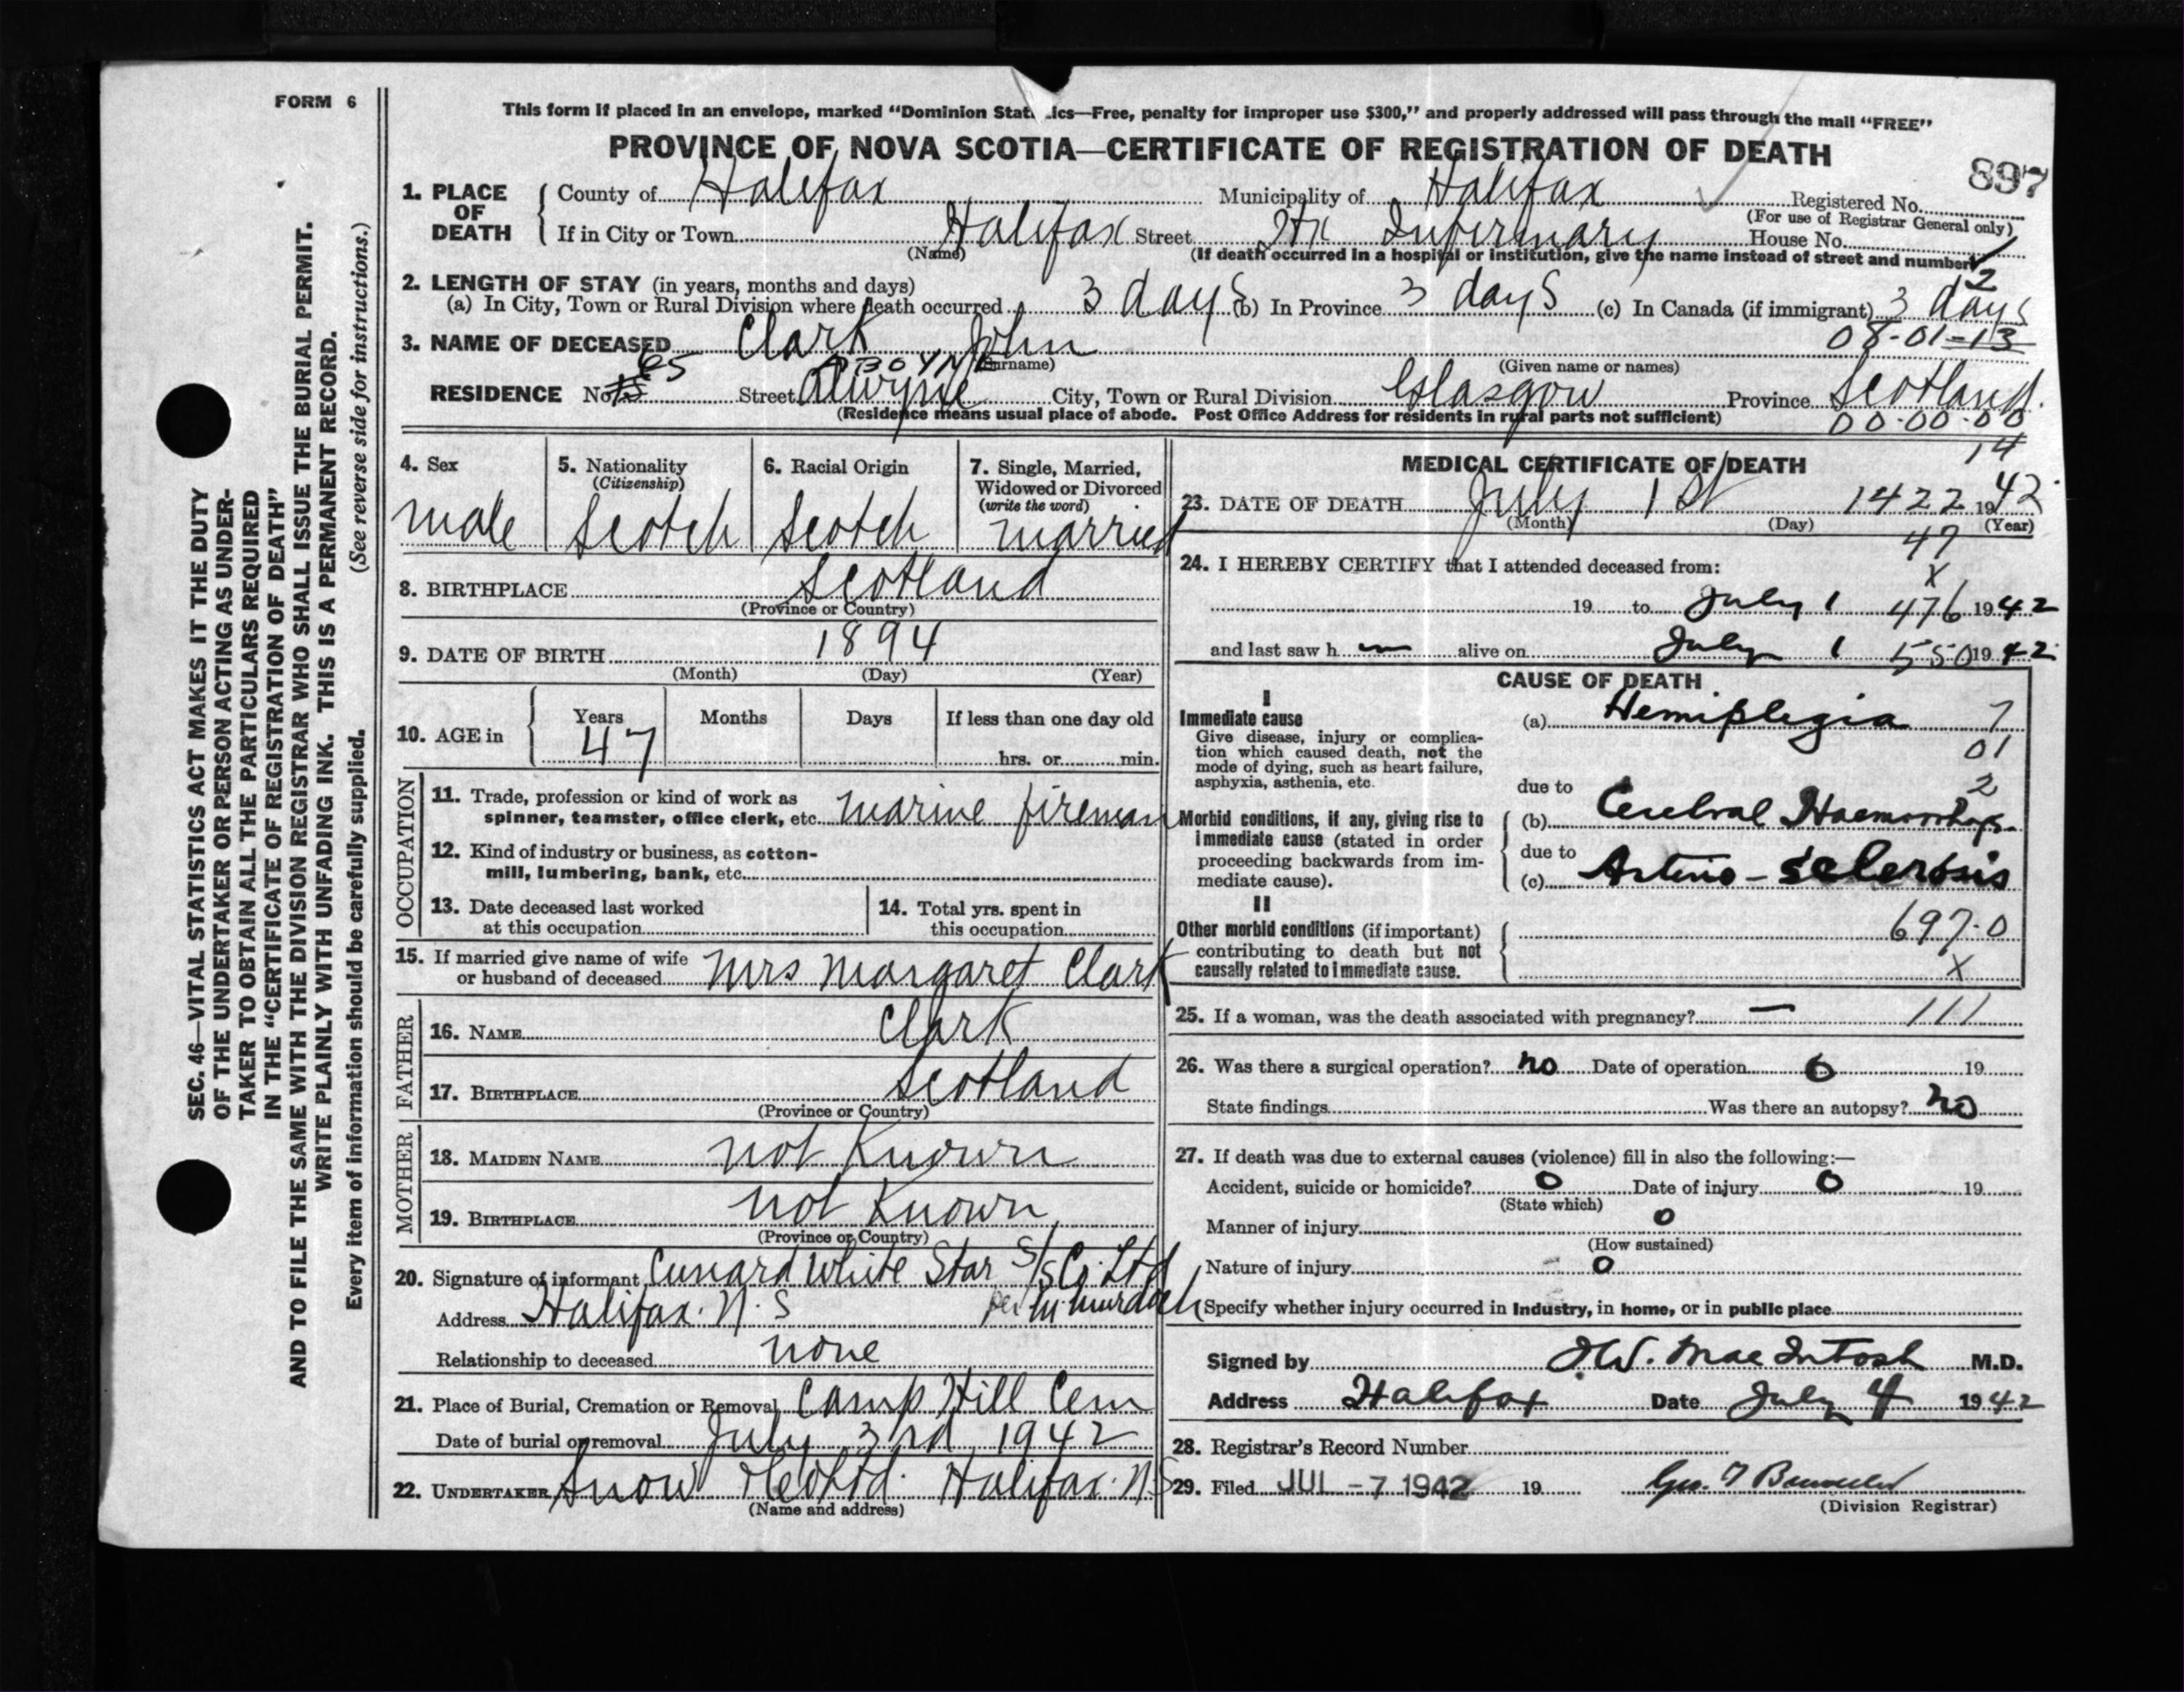 FORM 6
This form if placed in an envelope, marked "Dominion Stat ics—Free, penalty for improper use $300," and properly addressed will pass through the mail "FREE"
PROVINCE OF NOVA SCOTIA—CERTIFICATE OF REGISTRATION OF DEATH
897
1. PLACE OF DEATH
County of Halifax Municipality of Halifax Registered No.
(For use of Registrar General only)
If in City or Town Halifax Street Hx Infirmary House No.
(Name) (If death occurred in a hospital or institution, give the name instead of street and number)
2
2. LENGTH OF STAY (in years, months and days)
(a) In City, Town or Rural Division where death occurred 3 days (b) In Province 3 days (c) In Canada (if immigrant) 3 days
08-01-13
3. NAME OF DECEASED Clark John
(Surname) (Given name or names)
65 ABOYNE
RESIDENCE No. Street Alwyne City, Town or Rural Division Glasgow Province Scotland.
(Residence means usual place of abode. Post Office Address for residents in rural parts not sufficient)
00-00-00
14
4. Sex
male
5. Nationality
(Citizenship)
Scotch
6. Racial Origin
Scotch
7. Single, Married,
Widowed or Divorced
(write the word)
married
8. BIRTHPLACE Scotland
(Province or Country)
9. DATE OF BIRTH 1894
(Month) (Day) (Year)
10. AGE in
Years Months Days If less than one day old
47 hrs. or min.
OCCUPATION
11. Trade, profession or kind of work as
spinner, teamster, office clerk, etc. marine fireman
12. Kind of industry or business, as cotton-
mill, lumbering, bank, etc.
13. Date deceased last worked
at this occupation
14. Total yrs. spent in
this occupation
15. If married give name of wife
or husband of deceased Mrs Margaret Clark
FATHER
16. NAME Clark
17. BIRTHPLACE Scotland
(Province or Country)
MOTHER
18. MAIDEN NAME not Known
19. BIRTHPLACE not Known
(Province or Country)
20. Signature of informant Cunard White Star S/S Co. Ltd
per M. Murdoch
Address Halifax. N. S
Relationship to deceased none
21. Place of Burial, Cremation or Removal Camp Hill Cem
Date of burial or removal July 3rd 1942
22. UNDERTAKER Snow & Co Ltd. Halifax. N.S
(Name and address)
MEDICAL CERTIFICATE OF DEATH
23. DATE OF DEATH July 1st 1422 1942
(Month) (Day) (Year)
47
X
24. I HEREBY CERTIFY that I attended deceased from:
19 to July 1 476 1942
and last saw h m alive on July 1 550 1942
CAUSE OF DEATH
I
Immediate cause
Give disease, injury or complica-
tion which caused death, not the
mode of dying, such as heart failure,
asphyxia, asthenia, etc.
(a) Hemiplegia 7
01
2
due to
Morbid conditions, if any, giving rise to
immediate cause (stated in order
proceeding backwards from im-
mediate cause).
(b) Cerebral Haemorrhage
due to
(c) Arterio-sclerosis
II
Other morbid conditions (if important)
contributing to death but not
causally related to immediate cause.
697.0
X
25. If a woman, was the death associated with pregnancy? — 111
26. Was there a surgical operation? no Date of operation 0 19
State findings Was there an autopsy? no
27. If death was due to external causes (violence) fill in also the following:—
Accident, suicide or homicide? 0 Date of injury 0 19
(State which)
Manner of injury 0
(How sustained)
Nature of injury 0
Specify whether injury occurred in Industry, in home, or in public place
Signed by W. MacIntosh M.D.
Address Halifax Date July 4 1942
28. Registrar's Record Number
29. Filed JUL -7 1942 19
(Division Registrar)
SEC. 46—VITAL STATISTICS ACT MAKES IT THE DUTY
OF THE UNDERTAKER OR PERSON ACTING AS UNDER-
TAKER TO OBTAIN ALL THE PARTICULARS REQUIRED
IN THE "CERTIFICATE OF REGISTRATION OF DEATH"
AND TO FILE THE SAME WITH THE DIVISION REGISTRAR WHO SHALL ISSUE THE BURIAL PERMIT.
WRITE PLAINLY WITH UNFADING INK. THIS IS A PERMANENT RECORD.
Every item of information should be carefully supplied. (See reverse side for instructions.)